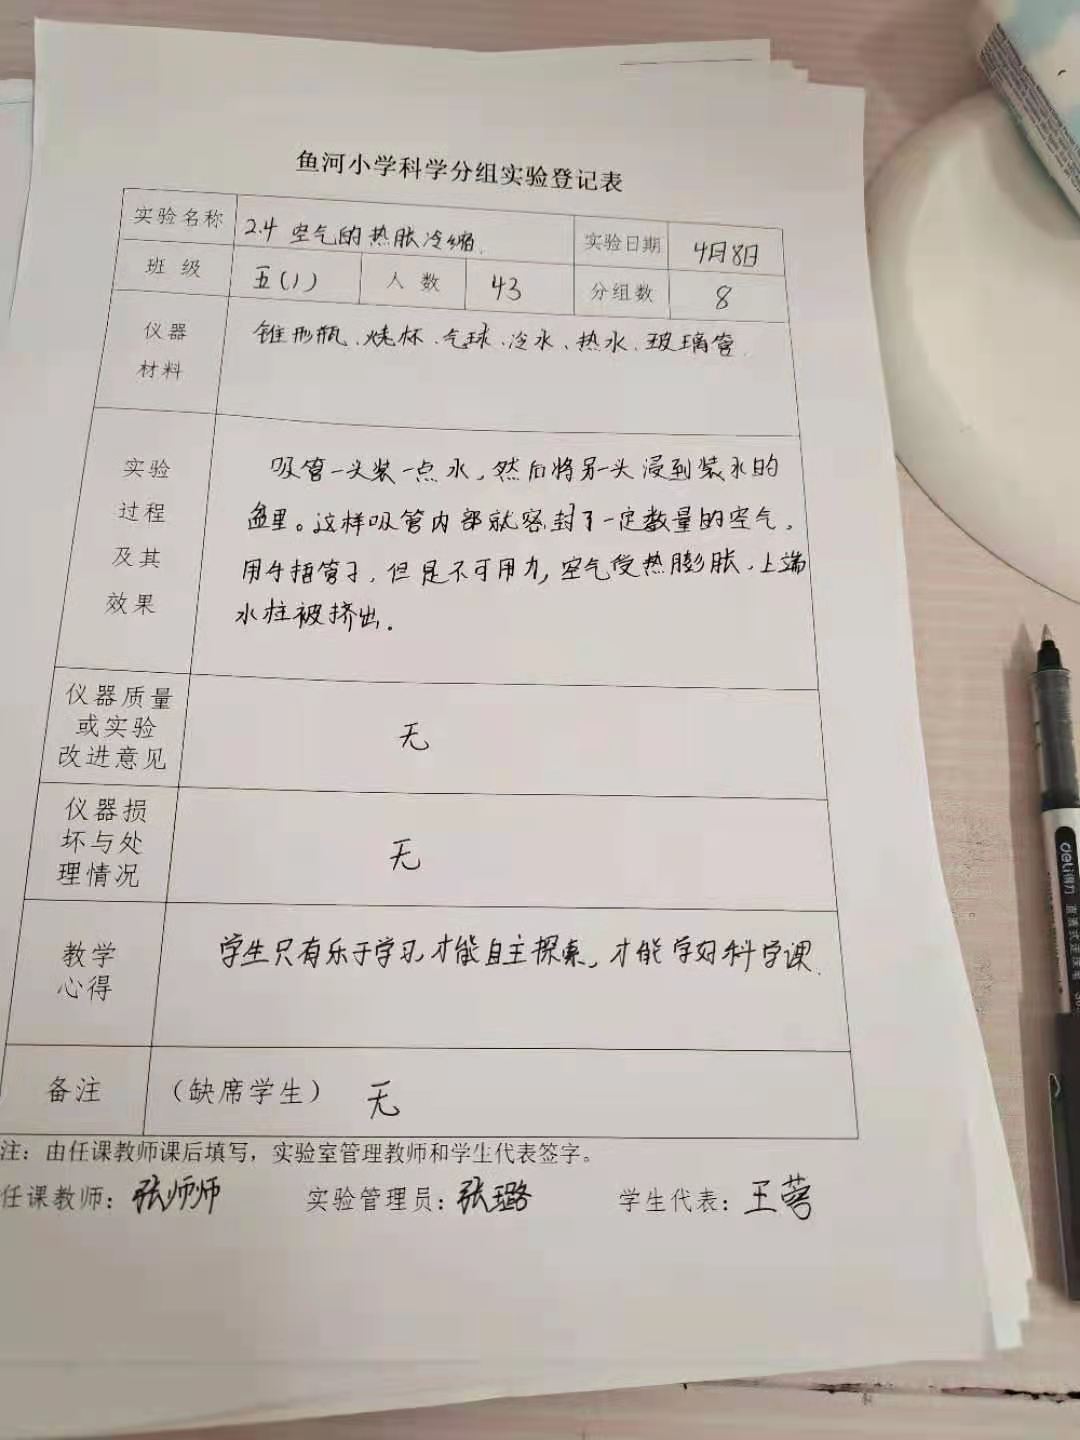 鱼河小学科学分组实验登记表
实验名称 2.4 空气的热胀冷缩. 实验日期 4月8日
班 级 五(1) 人 数 43 分组数 8
仪器 锥形瓶、烧杯、气球、冷水、热水、玻璃管.
材料
实验 吸管一头装一点水,然后将另一头浸到装水的
过程 盆里。这样吸管内部就密封了一定数量的空气,
及其 用手捂管子,但是不可用力,空气受热膨胀,上端
效果 水柱被挤出.
仪器质量
或实验 无
改进意见
仪器损
坏与处 无
理情况
教学 学生只有乐于学习,才能自主探索,才能学好科学课.
心得
备注 (缺席学生) 无
注: 由任课教师课后填写,实验室管理教师和学生代表签字。
任课教师: 张师师 实验管理员: 张璐 学生代表: 王
deli 得力
直液式走珠笔